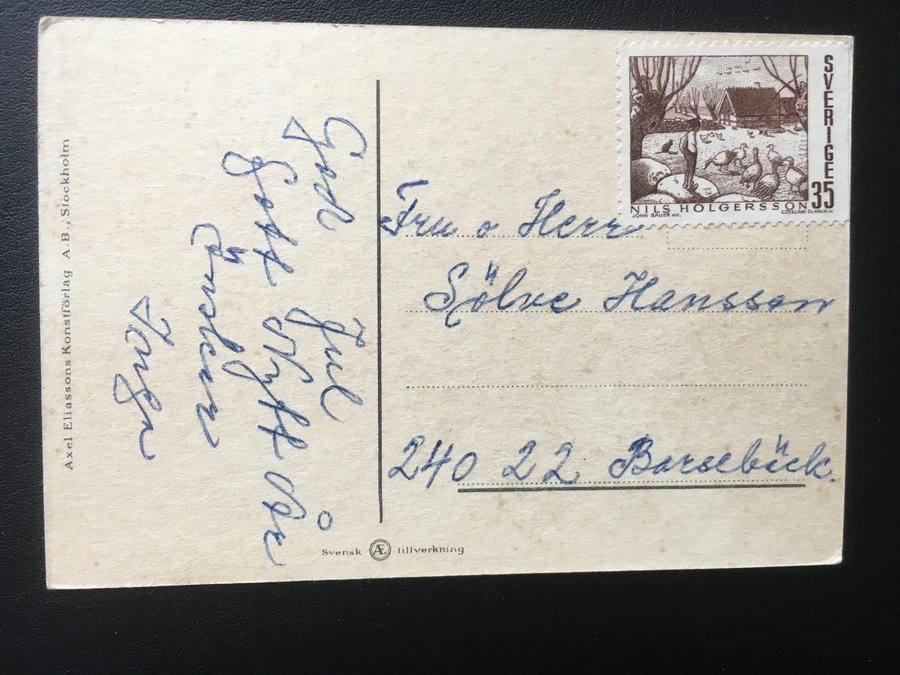 God Jul
Gott Nytt År
Önskar
Inga
Fru o Herr
Sölve Hansson
240 22 Barsebäck.
SVERIGE
35
NILS HOLGERSSON
JOHN BAUER del.
CZESLAW SLANIA sc
Axel Eliassons Konstförlag A.B., Stockholm
Svensk Æ tillverkning